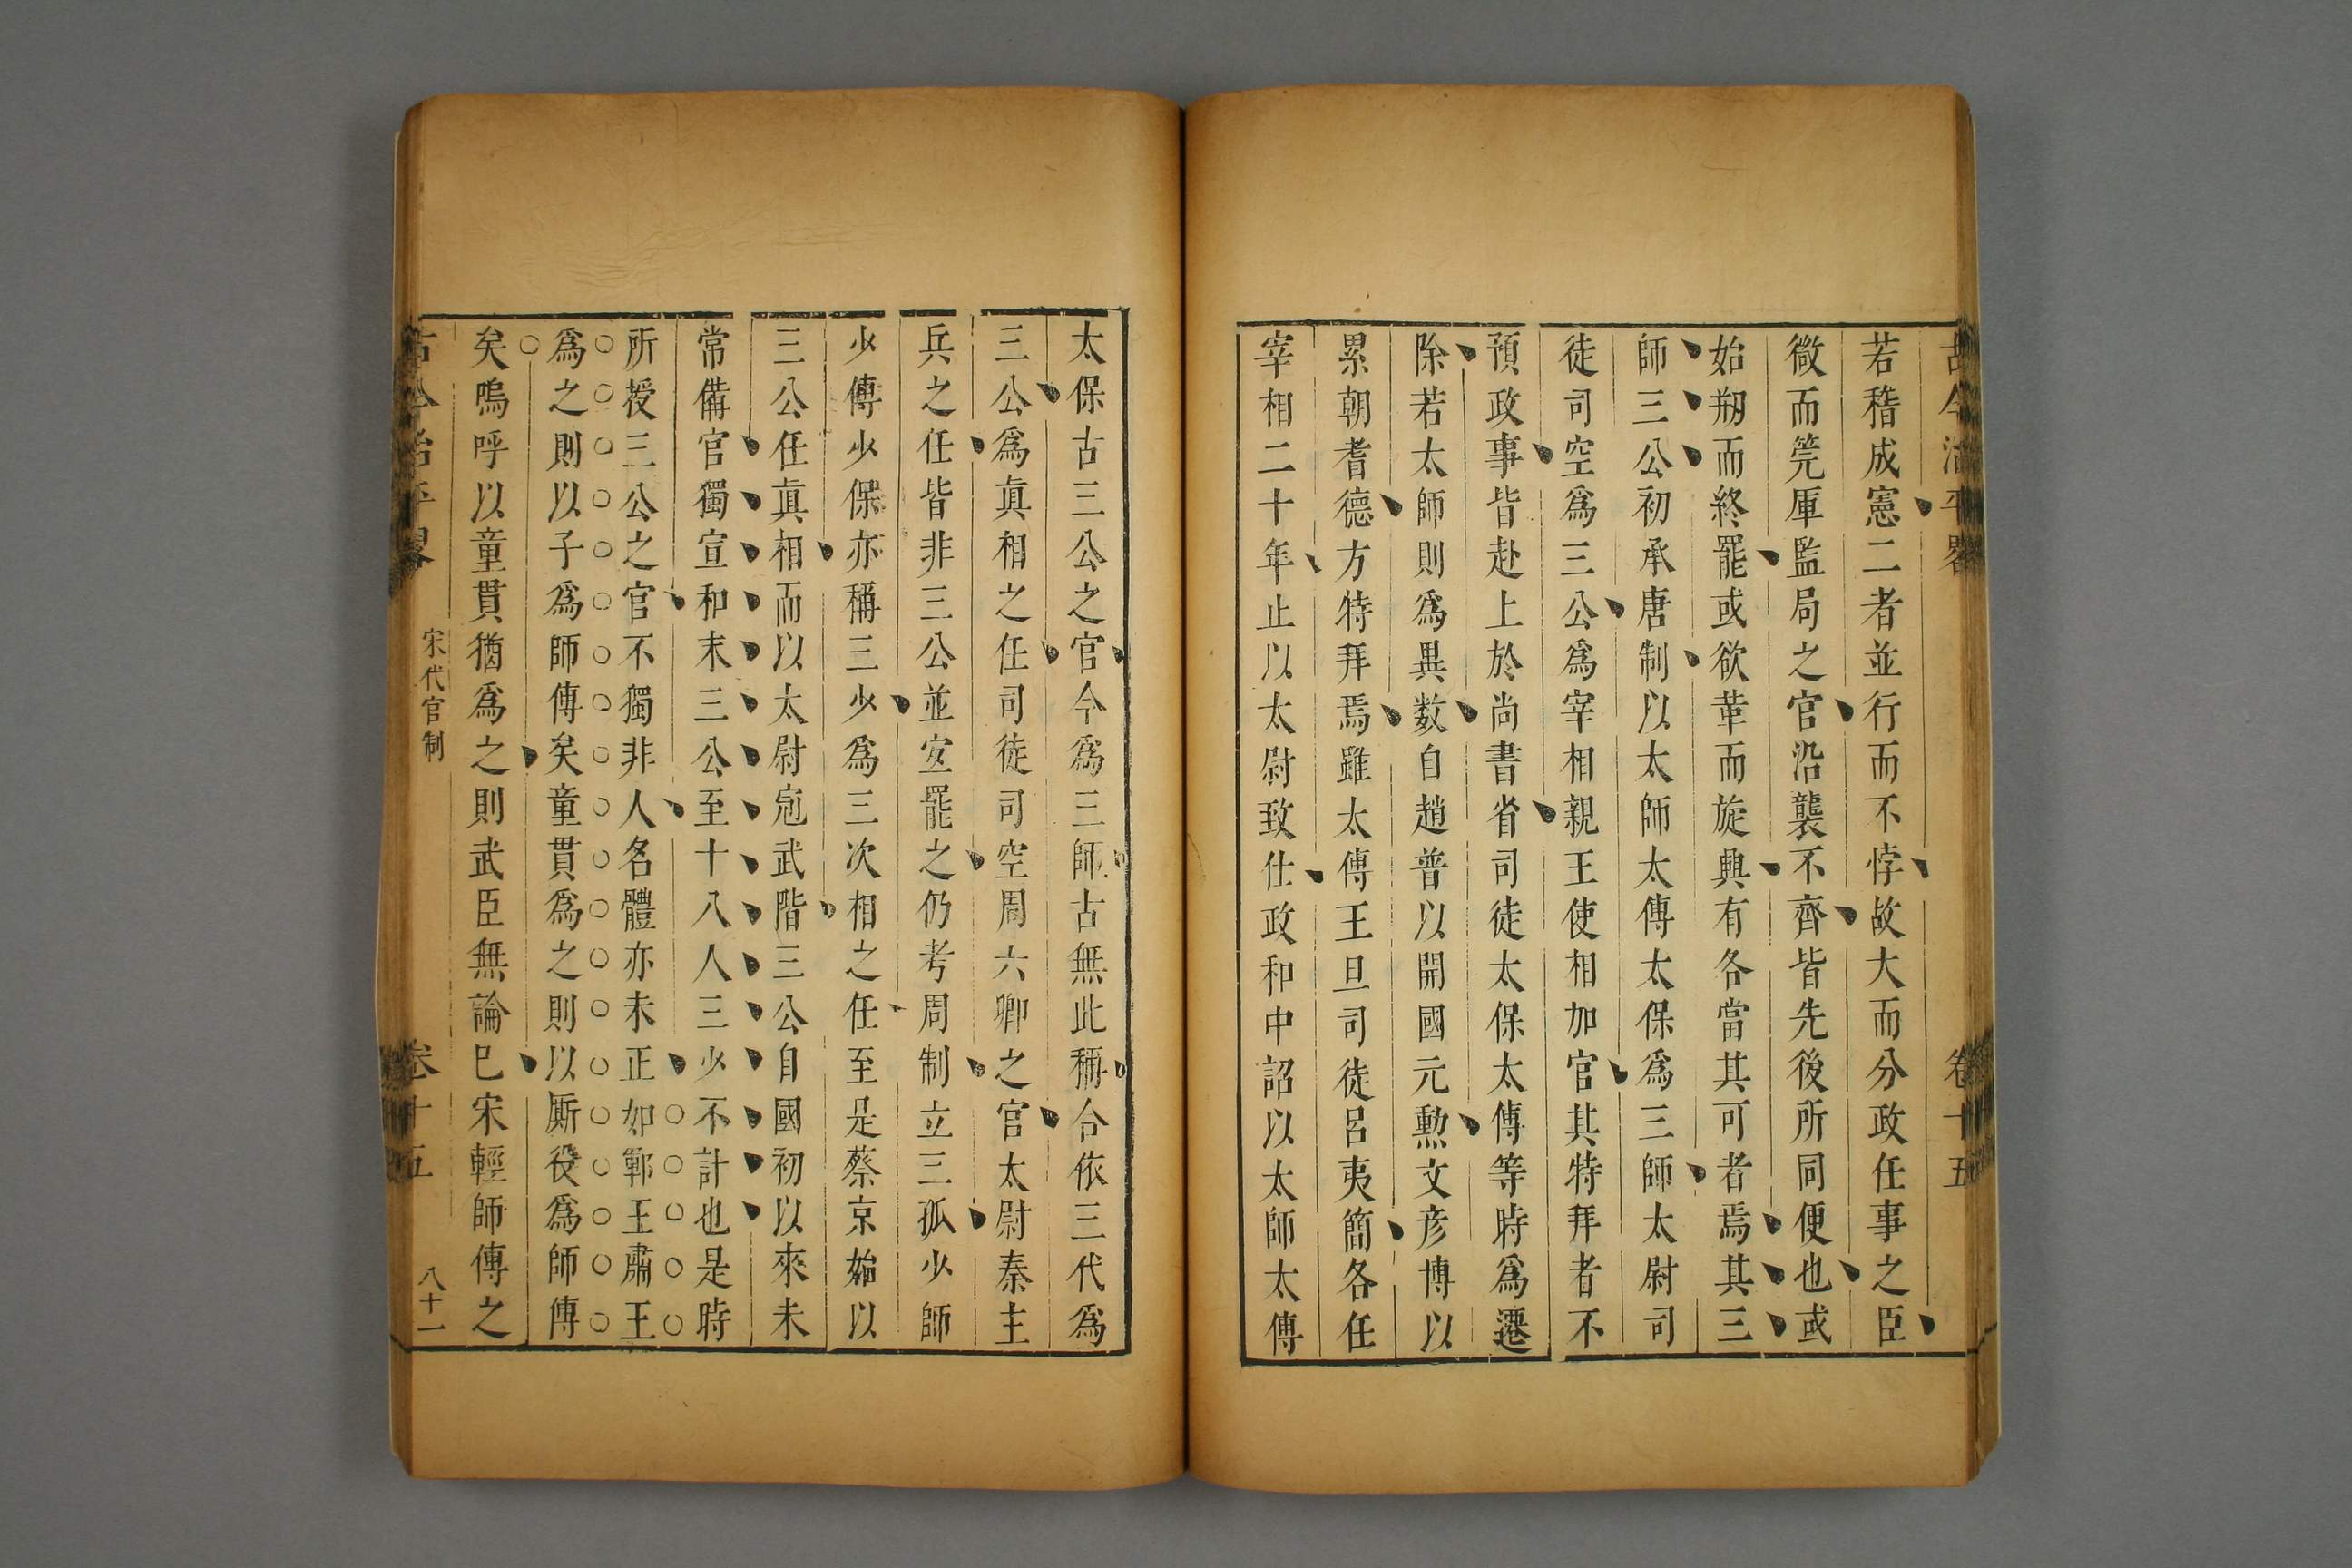 古今治平畧 卷十五
若稽成憲二者並行而不悖故大而分政任事之臣
微而筦庫監局之官沿襲不齊皆先後所同便也或
始剏而終罷或欲革而旋興有各當其可者焉其三
師三公初承唐制以太師太傅太保爲三師太尉司
徒司空爲三公爲宰相親王使相加官其特拜者不
預政事皆赴上於尚書省司徒太保太傅等時爲遷
除若太師則爲異数自趙普以開國元勳文彦博以
累朝耆德方特拜焉雖太傅王旦司徒呂夷簡各任
宰相二十年止以太尉致仕政和中詔以太師太傅
太保古三公之官今爲三師古無此稱合依三代爲
三公爲眞相之任司徒司空周六卿之官太尉秦主
兵之任皆非三公並宐罷之仍考周制立三孤少師
少傅少保亦稱三少爲三次相之任至是蔡京始以
三公任眞相而以太尉冠武階三公自國初以來未
常備官獨宣和末三公至十八人三少不計也是時
所授三公之官不獨非人名體亦未正如鄆王肅王
爲之則以子爲師傅矣童貫爲之則以厮役爲師傅
矣嗚呼以童貫猶爲之則武臣無論巳宋輕師傅之
古今治平畧 宋代官制 卷十五 八十一